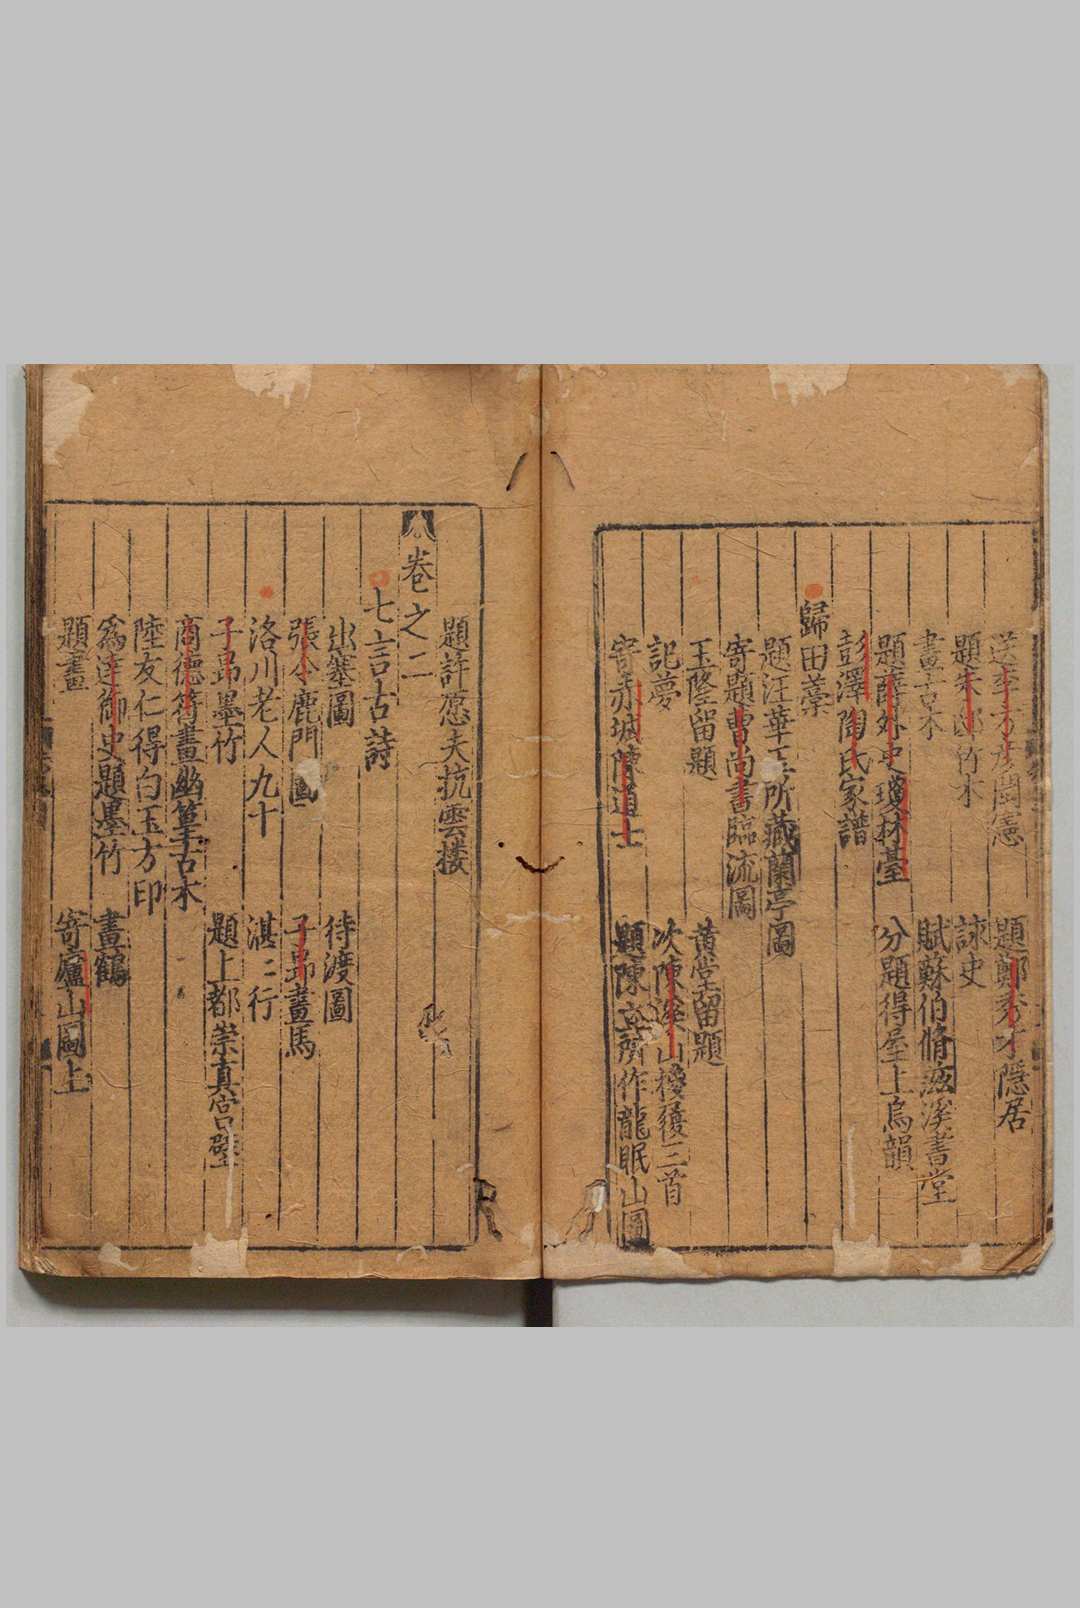 送李秀才閩憲 題鄭秀才隱居
題朱邸竹木 詠史
畫古木 賦蘇伯脩滋溪書堂
題薛外史瓊林臺 分題得屋上烏韻
彭澤陶氏家譜
歸田藁
題汪華玉所藏蘭亭圖
寄題曹尚書臨流圖
玉隆留題 黃堂留題
記夢 次陳溪山㯶履三首
寄赤城陳道士 題陳立所作龍眠山圖
題許愿夫抗雲樓
卷之二
七言古詩
出塞圖 待渡圖
張令鹿門圖 子昂畫馬
洛川老人九十 湛湛行
子昂墨竹
商德符畫幽篁古木 題上都崇真宮壁
陸友仁得白玉方印
為達御史題墨竹 畫鶴
題畫 寄廬山圖上